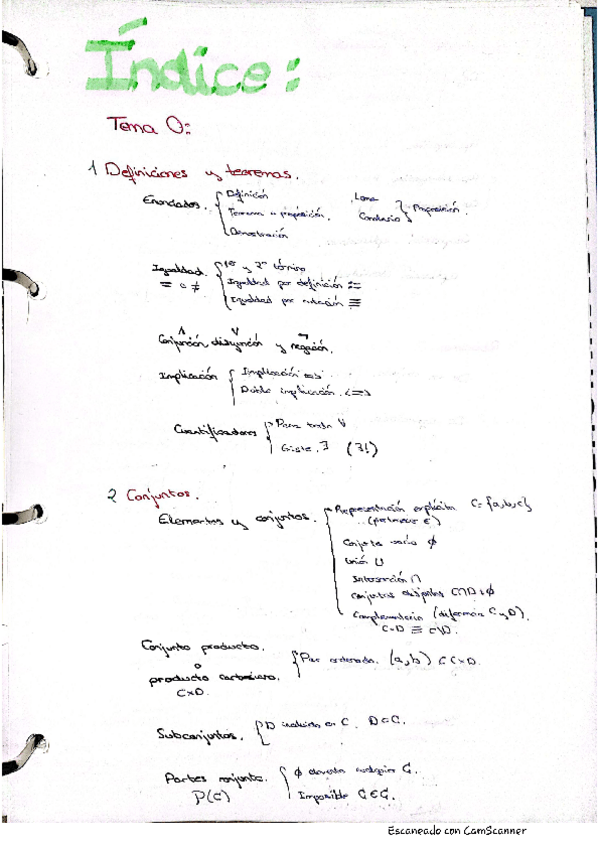 Índice:
Tema 0:
1 Definiciones y teoremas.
Enunciados. { Definición
Teorema o proposición.
Demostración
Lema
Corolario } Proposición.
Igualdad. { 1er y 2º término
= o ≠ Igualdad por definición :=
Igualdad por notación ≡
∧ ∨ ¬
Conjunción, disyunción y negación.
Implicación { Implicación =>
Doble implicación. <=>
Cuantificadores { Para todo ∀
Existe. ∃ (∃!)
2 Conjuntos.
Elementos y conjuntos. { Representación explícita C={a,b,c}
(pertenece ∈)
Conjunto vacío ∅
Unión ∪
Intersección ∩
Conjuntos disjuntos C∩D=∅
Complementario (diferencia C y D).
C-D ≡ C\D.
Conjunto producto. { Par ordenado. (a,b) ∈ C×D.
o
producto cartesiano.
C×D.
Subconjuntos. { D incluido en C. D⊂C.
Partes conjunto. { ∅ elemento cualquier C.
P(C) Imposible C∈C.
Escaneado con CamScanner